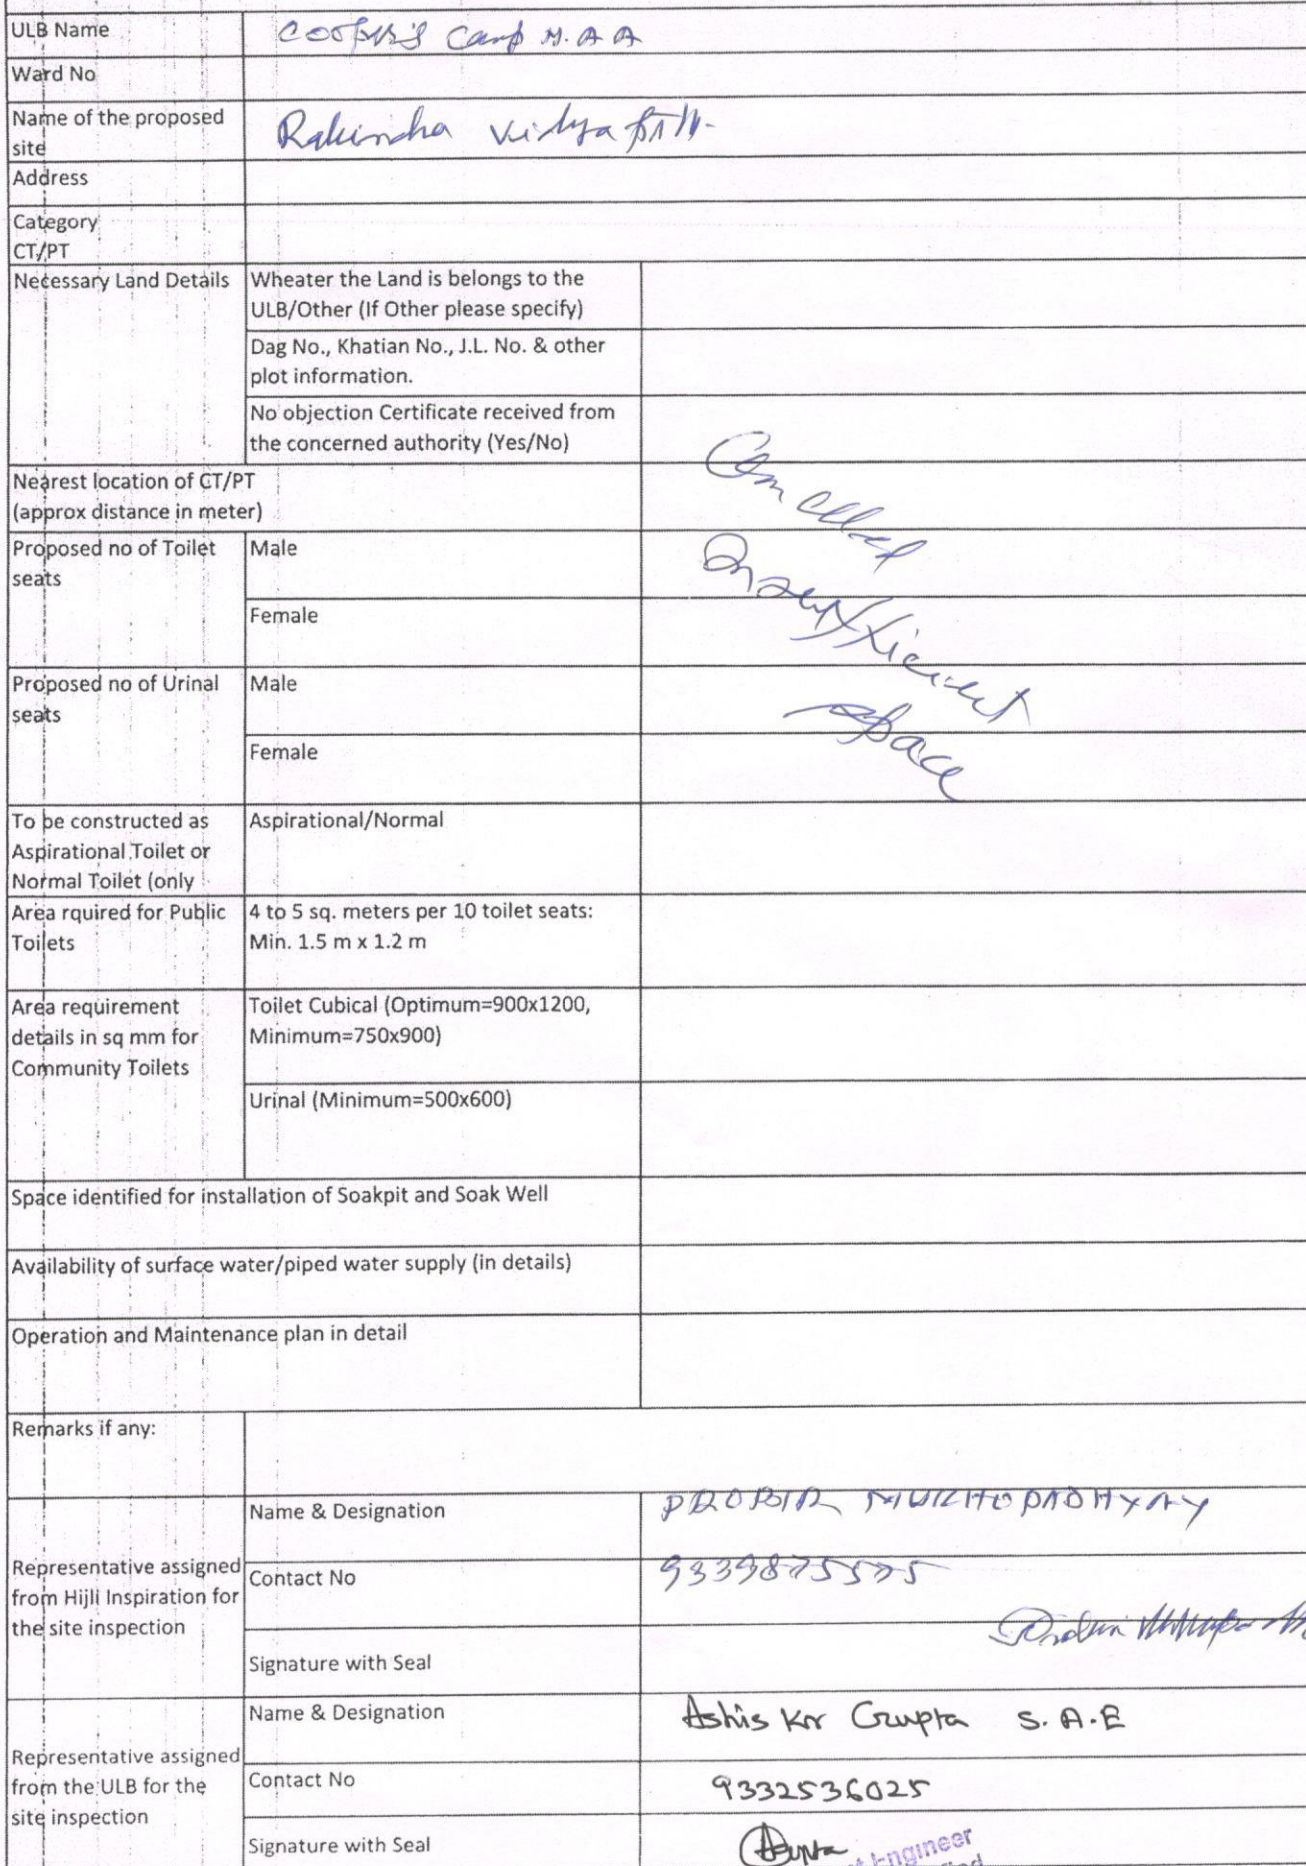 ULB Name
Cooper's Camp N.A.A
Ward No
Name of the proposed
site
Rabindra Vidya
Address
Category
CT/PT
Necessary Land Details
Wheater the Land is belongs to the
ULB/Other (If Other please specify)
Dag No., Khatian No., J.L. No. & other
plot information.
No objection Certificate received from
the concerned authority (Yes/No)
Nearest location of CT/PT
(approx distance in meter)
Cancelled
Insufficient
space
Proposed no of Toilet
seats
Male
Female
Proposed no of Urinal
seats
Male
Female
To be constructed as
Aspirational Toilet or
Normal Toilet (only
Aspirational/Normal
Area rquired for Public
Toilets
4 to 5 sq. meters per 10 toilet seats:
Min. 1.5 m x 1.2 m
Area requirement
details in sq mm for
Community Toilets
Toilet Cubical (Optimum=900x1200,
Minimum=750x900)
Urinal (Minimum=500x600)
Space identified for installation of Soakpit and Soak Well
Availability of surface water/piped water supply (in details)
Operation and Maintenance plan in detail
Remarks if any:
Representative assigned
from Hijli Inspiration for
the site inspection
Name & Designation
PROBIR MUKHOPADHYAY
Contact No
9339875575
Signature with Seal
Representative assigned
from the ULB for the
site inspection
Name & Designation
Ashis Kr Gupta S.A.E
Contact No
9332536025
Signature with Seal
AGupta
Engineer